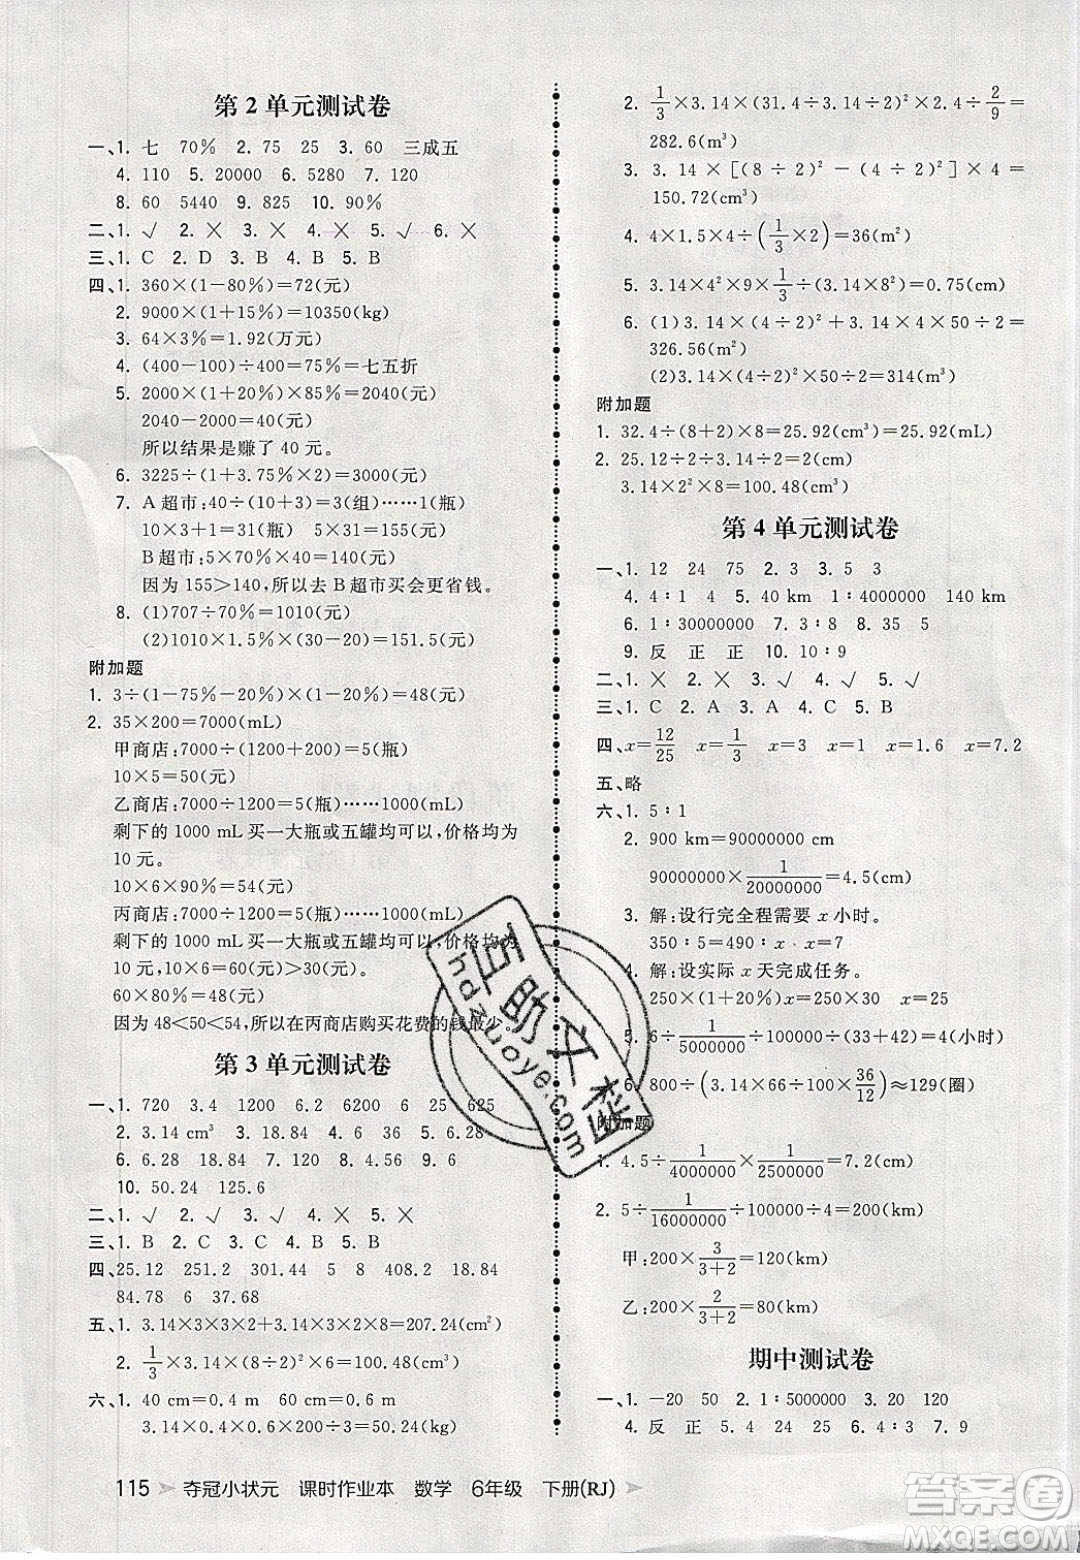 第2单元测试卷
一、1. 七 70% 2. 75 25 3. 60 三成五
4. 110 5. 20000 6. 5280 7. 120
8. 60 5440 9. 2800 10. 90%
二、1. √ 2. × 3. × 4. × 5. √ 6. ×
三、1. C 2. D 3. B 4. B 5. B
四、1. 360×(1-80%)=72(元)
2. 9000×(1+15%)=10350(kg)
3. 64×3%=1.92(万元)
4. (400-100)÷400=75%=七五折
5. 2000×(1+20%)×85%=2040(元)
2040-2000=40(元)
所以结果是赚了 40 元。
6. 3225÷(1+3.75%×2)=3000(元)
7. A 超市:40÷(10+3)=3(组)……1(瓶)
10×3+1=31(瓶) 5×31=155(元)
B 超市:5×70%×40=140(元)
因为 155>140,所以去 B 超市买会更省钱。
8. (1)707÷70%=1010(元)
(2)1010×1.5%×(30-20)=151.5(元)
附加题
1. 3÷(1-75%-20%)×(1-20%)=48(元)
2. 35×200=7000(mL)
甲商店:7000÷(1200+200)=5(瓶)
10×5=50(元)
乙商店:7000÷1200=5(瓶)……1000(mL)
剩下的 1000 mL 买一大瓶或五罐均可以,价格均为
10 元。
10×6×90%=54(元)
丙商店:7000÷1200=5(瓶)……1000(mL)
剩下的 1000 mL 买一大瓶或五罐均可以,价格均为
10 元。10×6=60(元)>30(元)
60×80%=48(元)
因为 48<50<54,所以在丙商店购买花费的钱最少。
第3单元测试卷
一、1. 720 3.4 1200 6.2 6200 6 25 625
2. 3.14 cm³ 3. 18.84 4. 6 36 5. 6.28
6. 6.28 18.84 7. 120 8. 36 9. 6
10. 50.24 125.6
二、1. √ 2. √ 3. √ 4. × 5. ×
三、1. B 2. C 3. B 4. C 5. B
四、25.12 251.2 301.44 5 8 408.2 4 50.24
84.78 6 37.68
五、1. 3.14×3×3×2+3.14×3×2×8=207.24(cm²)
2. 1/3×3.14×(8÷2)²×6=100.48(cm³)
六、1. 40 cm=0.4 m 60 cm=0.6 m
3.14×0.4×0.4×0.6×200÷3=20.096(kg)
2. 1/3×3.14×(31.4÷3.14÷2)²×2.4÷2/9=
282.6(m³)
3. 3.14×[(8÷2)²-(4÷2)²]×4=
150.72(cm³)
4. 4×1.5×4÷(1/3×2)=36(m²)
5. 3.14×4²×9×1/3÷(3.14×8²)=0.75(cm)
6. (1)3.14×(4÷2)²+3.14×4×50÷2=
326.56(m²)
(2)3.14×(4÷2)²×50÷2=314(m³)
附加题
1. 32.4÷(8+2)×8=25.92(cm³)=25.92(mL)
2. 25.12÷2÷3.14÷2=2(cm)
3.14×2²×8=100.48(cm³)
第4单元测试卷
一、1. 12 24 75 2. 3 3. 5 3
4. 4∶1 4 5. 40 km 1∶4000000 140 km
6. 1∶30000000 7. 3∶8 8. 24 5
9. 反 正 正 10. 10∶9
二、1. × 2. × 3. √ 4. √ 5. √
三、1. C 2. A 3. A 4. C 5. B
四、x=12/25 x=1/3 x=3 x=1.6 x=7.2
五、略
六、1. 5∶1
2. 900 km=90000000 cm
90000000×1/20000000=4.5(cm)
3. 解:设行完全程需要 x 小时。
350∶5=490∶x x=7
4. 解:设实际 x 天完成任务。
250×(1+20%)x=7500 x=25
5. 6÷1/5000000÷100000÷(33+42)=4(小时)
6. 800÷(3.14×66÷100×36/12)≈129(圈)
附加题
1. 4.5÷1/4000000×1/2500000=7.2(cm)
2. 5÷1/16000000÷100000÷4=200(km)
甲:200×3/(3+2)=120(km)
乙:200×2/(3+2)=80(km)
期中测试卷
一、1. -20 50 2. 1∶5000000 3. 20 120
4. 反 正 5. 4 24 25 6. 4∶3 7. 9
115 夺冠小状元 课时作业本 数学 6年级 下册(RJ)
互助文档
hdzuoye.com
答案圈
MXQE.COM